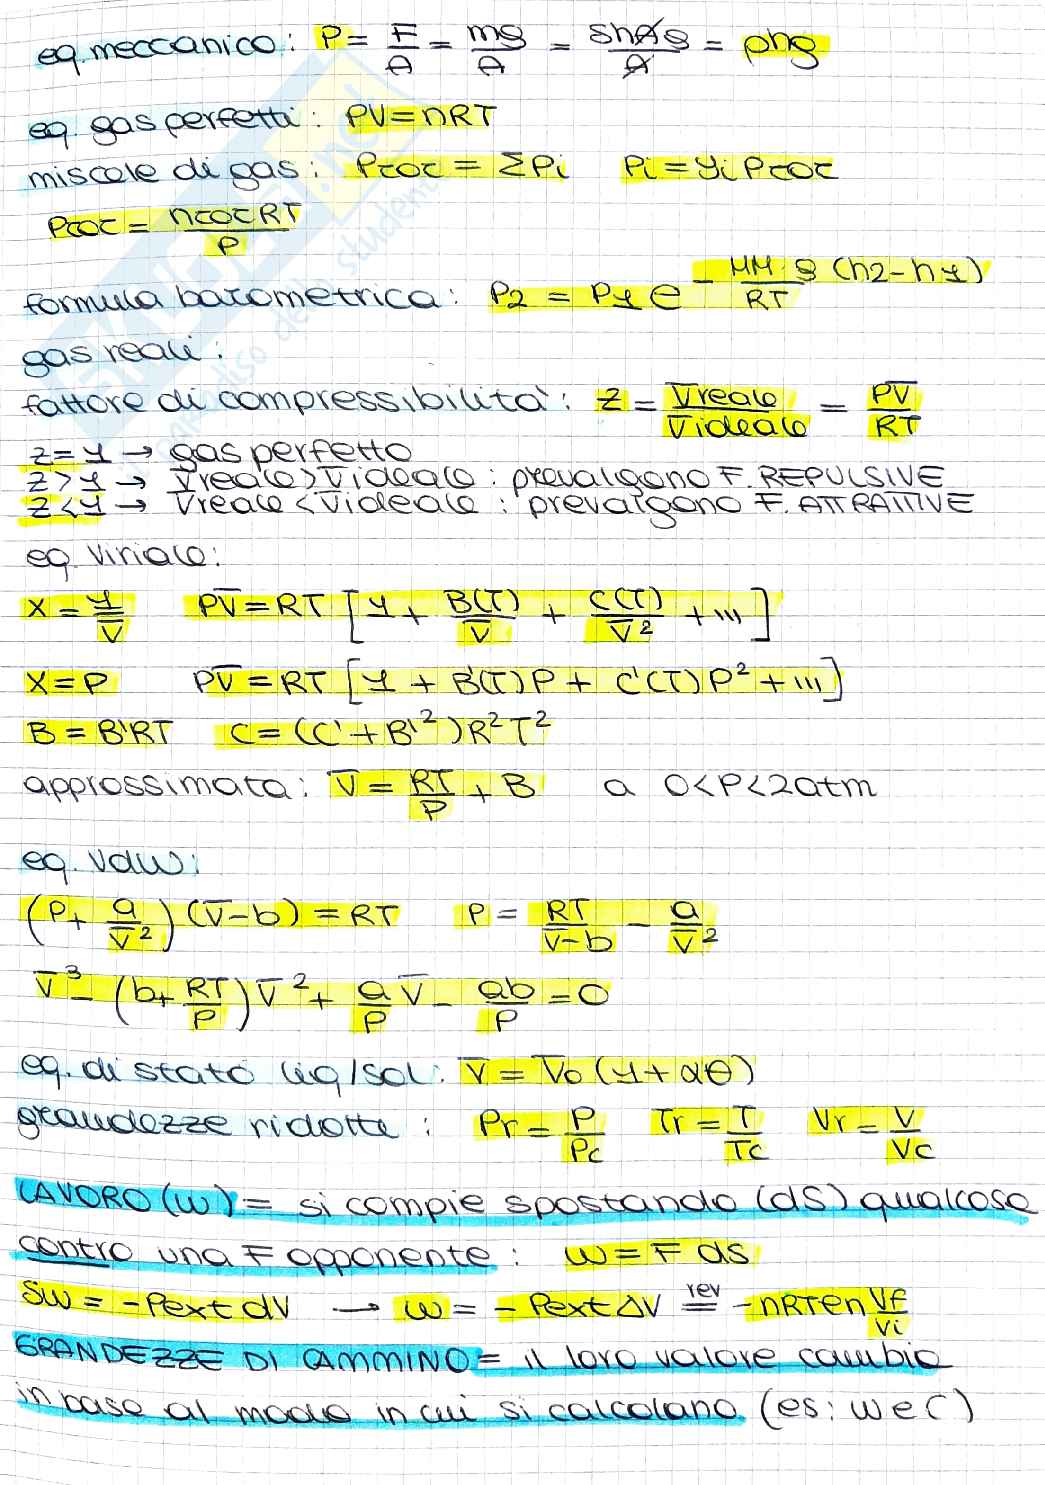 eq. meccanico: P = F/A = mg/A = ρhAg/A = ρhg
eq. gas perfetti: PV = nRT
miscele di gas: Ptot = ΣPi Pi = yi Ptot
Ptot = ntotRT/P
formula barometrica: P2 = P1 e^(-MM·g(h2-h1)/RT)
gas reali:
fattore di compressibilità: z = V̅reale/V̅ideale = PV̅/RT
z=1 → gas perfetto
z>1 → V̅reale>V̅ideale: prevalgono F. REPULSIVE
z<1 → V̅reale<V̅ideale: prevalgono F. ATTRATTIVE
eq. viriale:
X = 1/V̅ PV̅ = RT [1 + B(T)/V̅ + C(T)/V̅² + ...]
X = P PV̅ = RT [1 + B'(T)P + C'(T)P² + ...]
B = B'RT C = (C' + B'²)R²T²
approssimata: V̅ = RT/P + B a 0<P<2atm
eq. vdw:
(P + a/V̅²)(V̅-b) = RT P = RT/(V̅-b) - a/V̅²
V̅³ - (b + RT/P)V̅² + a/P V̅ - ab/P = 0
eq. di stato liq/sol: V̅ = V̅o (1+αθ)
grandezze ridotte: Pr = P/Pc Tr = T/Tc Vr = V/Vc
LAVORO (w) = si compie spostando (ds) qualcosa
contro una F opponente: w = F ds
δw = -Pext dV → w = -Pext ΔV =rev -nRT ln Vf/Vi
GRANDEZZE DI CAMMINO = il loro valore cambia
in base al modo in cui si calcolano. (es: w e C)